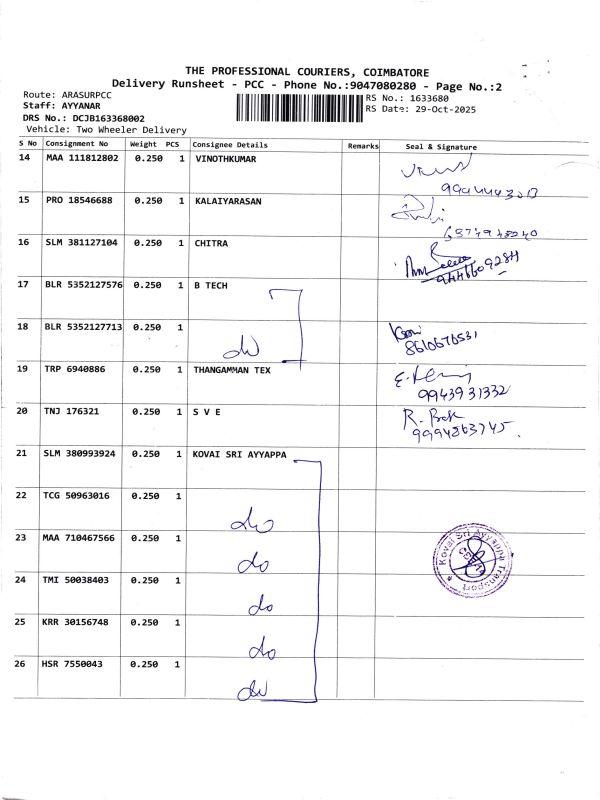 THE PROFESSIONAL COURIERS, COIMBATORE
Delivery Runsheet - PCC - Phone No.:9047080280 - Page No.:2
Route: ARASURPCC
RS No.: 1633680
Staff: AYYANAR
RS Date: 29-Oct-2025
DRS No.: DCJB163368002
Vehicle: Two Wheeler Delivery
S No Consignment No Weight PCS Consignee Details Remarks Seal & Signature
14 MAA 111812802 0.250 1 VINOTHKUMAR
15 PRO 18546688 0.250 1 KALAIYARASAN
16 SLM 381127104 0.250 1 CHITRA
9446609284
17 BLR 5352127576 0.250 1 B TECH
18 BLR 5352127713 0.250 1
do
8610676531
19 TRP 6940886 0.250 1 THANGAMMAN TEX
9943931332
20 TNJ 176321 0.250 1 S V E
R.
9994863745
21 SLM 380993924 0.250 1 KOVAI SRI AYYAPPA
22 TCG 50963016 0.250 1
do
23 MAA 710467566 0.250 1
do
Kovai Sri Ayyappa Transport
24 TMI 50038403 0.250 1
do
25 KRR 30156748 0.250 1
do
26 HSR 7550043 0.250 1
do